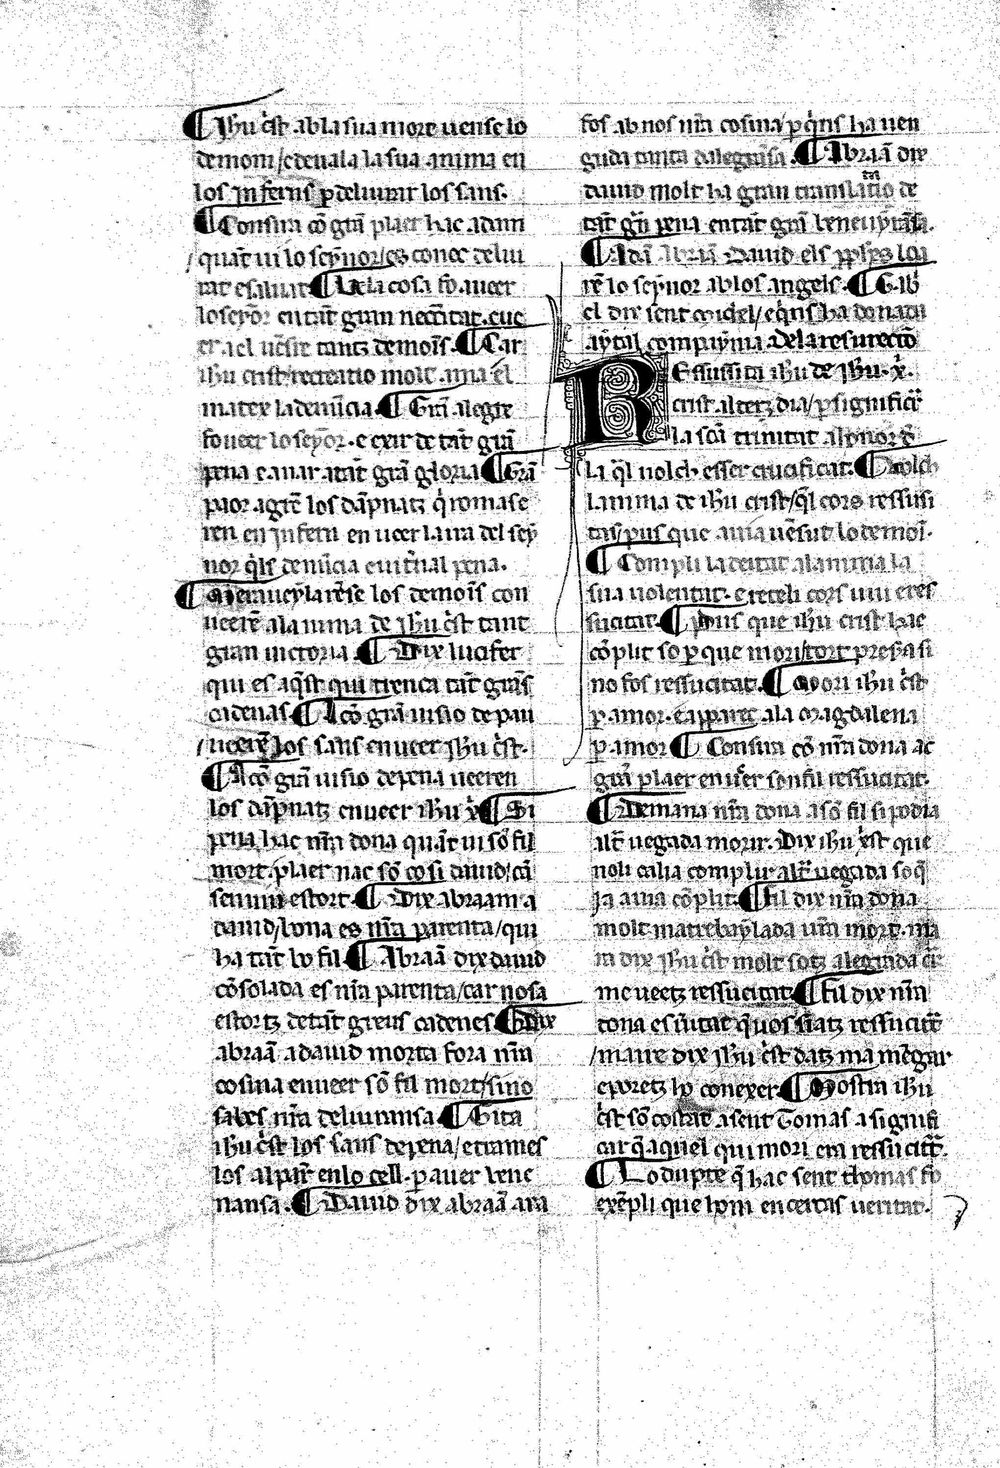 ¶ Ihu c̃st ab la sua mort uense lo
demoni / e deuala la sua anima en
los jnferns ꝑ deliurar los sans.
¶ Consira cõ grã plaer hac adam
quãt ui lo seynor / e conec deliu
rat e saluat ¶ Bela cosa fo aueer
lo seyõr en tãt gran necc̃itat. eue
er a el uẽsre tantz demoñs. ¶ Car
ihu crist recreatio molt. ama el
matex la denũcia ¶ Grã alegre
fo ueer lo seyor. e exir de tãt grã
pena e anar a tãt grã gloria ¶ Grã
paor agrẽ los dãpnatz q̃ romase
ren en jnfern en ueer la ira del sey
nor q̃ls denũcia euit̃nal pena.
¶ Meraueylarẽse los demoñs con
ueerẽ a la nima de ihu c̃st tant
gran uictoria. ¶ Dix lucifer
qui es aq̃st qui trenca tãt grãs
cadenas ¶ A cõ grã uisio de pau
ueerẽ los sans en ueer jhu c̃st.
¶ A cõ grã uisio de pena ueeren
los dãpnatz en ueer ihu x̃ ¶ Si
pena hac nr̃a dona quãt ui sõ fil
mort. plaer nac sõ cosi dauid / cã
senuni estort. ¶ Dix abraam a
dauid / bona es nr̃a parenta / qui
ha tãt bo fil ¶ Abraã dix dauid
cõsolada es nr̃a parenta / car nosa
estortz de tãt greus cadenes ¶ Dix
abraã a dauid morta fora nr̃a
cosina en ueer sõ fil mort / sino
sabes nr̃a deliuransa ¶ Gita
ihu c̃st los sans de pena / e trames
los al par̃ en lo cell. ꝑ auer bene
nansa. ¶ Dauid dix abraã ara
fos ab nos nr̃a cosina / ꝑ q̃ns ha uen
guda tanta dalegrãsa. ¶ Abraã dix
dauid molt ha gran translatio de
tãt grã pena en tãt grã benenyrãsa.
¶ Adã abriã dauid els ꝓpfes loa
rẽ lo seynor ab los angels. ¶ Gab̃
el dix sent michel / e q̃ns ha donada
aytal companyma De la resurectio
Ressussita ihu de jhu. x̃.
crist al terz dia / ꝑ significar̃
la scã trinitat a honor d̃
la q̃l uolch esser crucificat. ¶ Uolch
la nima de ihu crist / q̃l cors ressusi
tas / pus que auia uẽsut lo demoñ.
¶ Compli la deitat a la nima la
sua uolentat. e reteli cors uiu e res
sucitat. ¶ Pus que ihu crist hac
cõplit so ꝑ que mori / tort presera si
no fos ressucitat. ¶ Mori ihu c̃st
ꝑ amor. e apparec a la magdalena
ꝑ amor ¶ Consira cõ nr̃a dona ac
grã plaer en ueer son fil ressucitat.
¶ Demana nr̃a dona a sõ fil si podia
altr̃ uegada morir. Dix ihu xr̃st que
noli calia complir altr̃ uegada so q̃
ja auia cõplit. ¶ Fil dix nr̃a dona
molt ma trebaylada ura mort. ma
ra dix jhu c̃st molt sotz alegrada cr̃
me ueetz ressucitat ¶ Fil dix nr̃a
dona es ũitat q̃ uos siatz ressucitt̃
maire dix jhu c̃st datz ma mẽgar
e poretz ho conexer ¶ Mostra ihu
c̃st sõ costat a sent Tomas a signifi
car q̃ aquel qui mori era ressucitt̃.
¶ Lo dupte q̃ hac sent thomas fo
exẽpli que hom encercas ueritat.